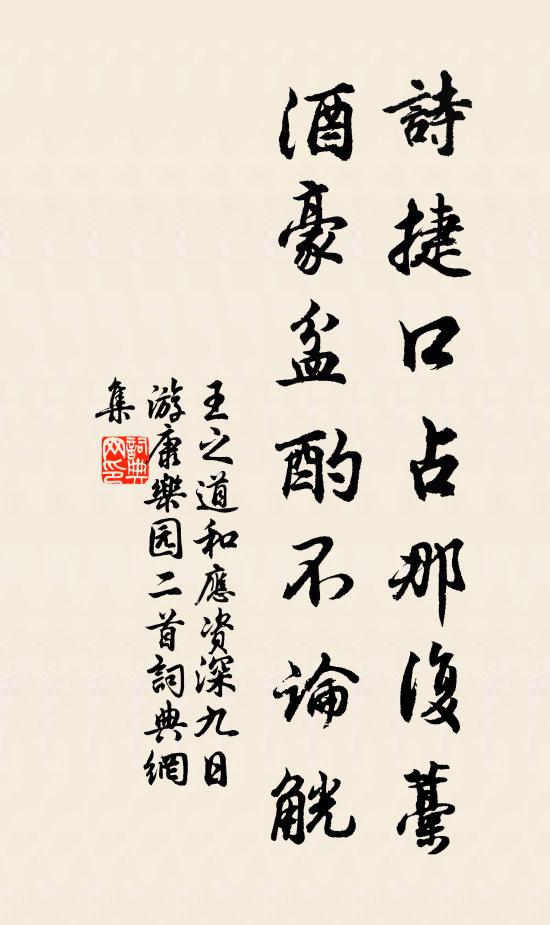 詩捷口占那復藁
酒豪盆酌不論觥
王之道和應资深九日
游康樂园二首詞典網
集
詞典
网